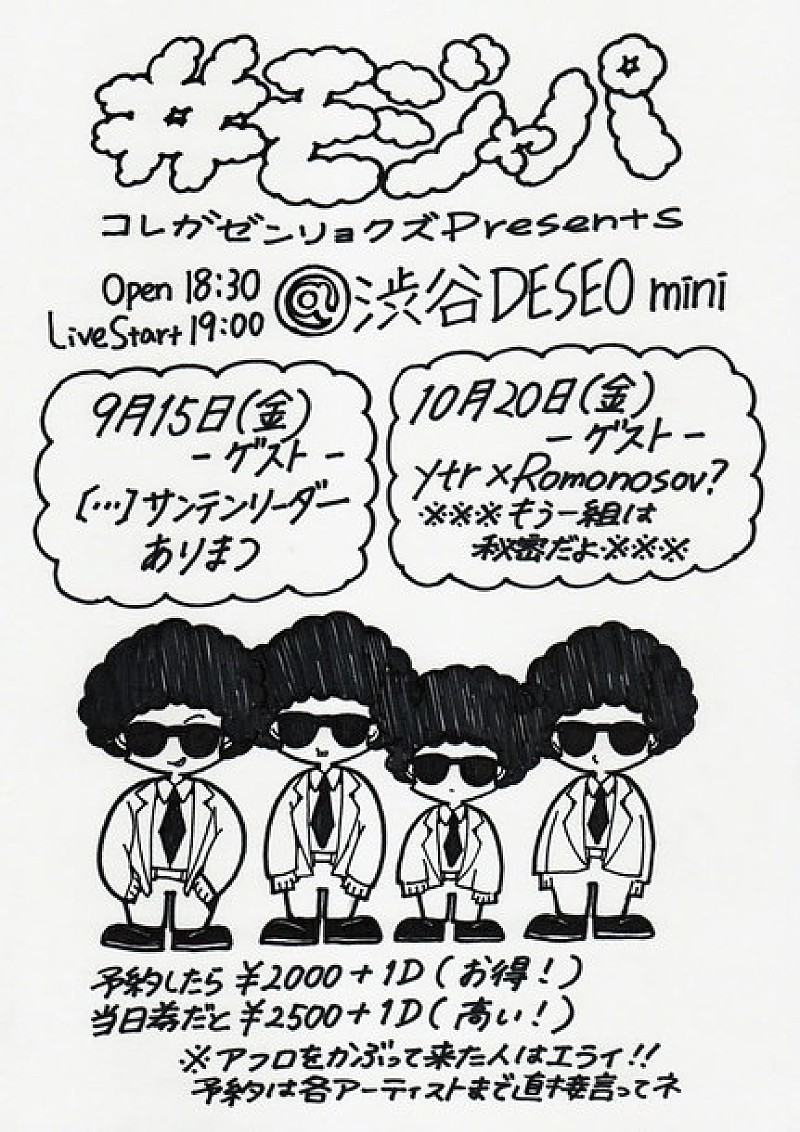 #モジャパ
コレガゼンリョクズPresents
Open 18:30
LiveStart 19:00
@渋谷DESEO mini
9月15日(金)
-ゲスト-
[…]サンテンリーダー
ありまつ
10月20日(金)
-ゲスト-
ytr×Romonosov?
※※※もう一組は
秘密だよ※※※
予約したら¥2000+1D(お得!)
当日券だと¥2500+1D(高い!)
※アフロをかぶって来た人はエライ!!
予約は各アーティストまで直接言ってネ